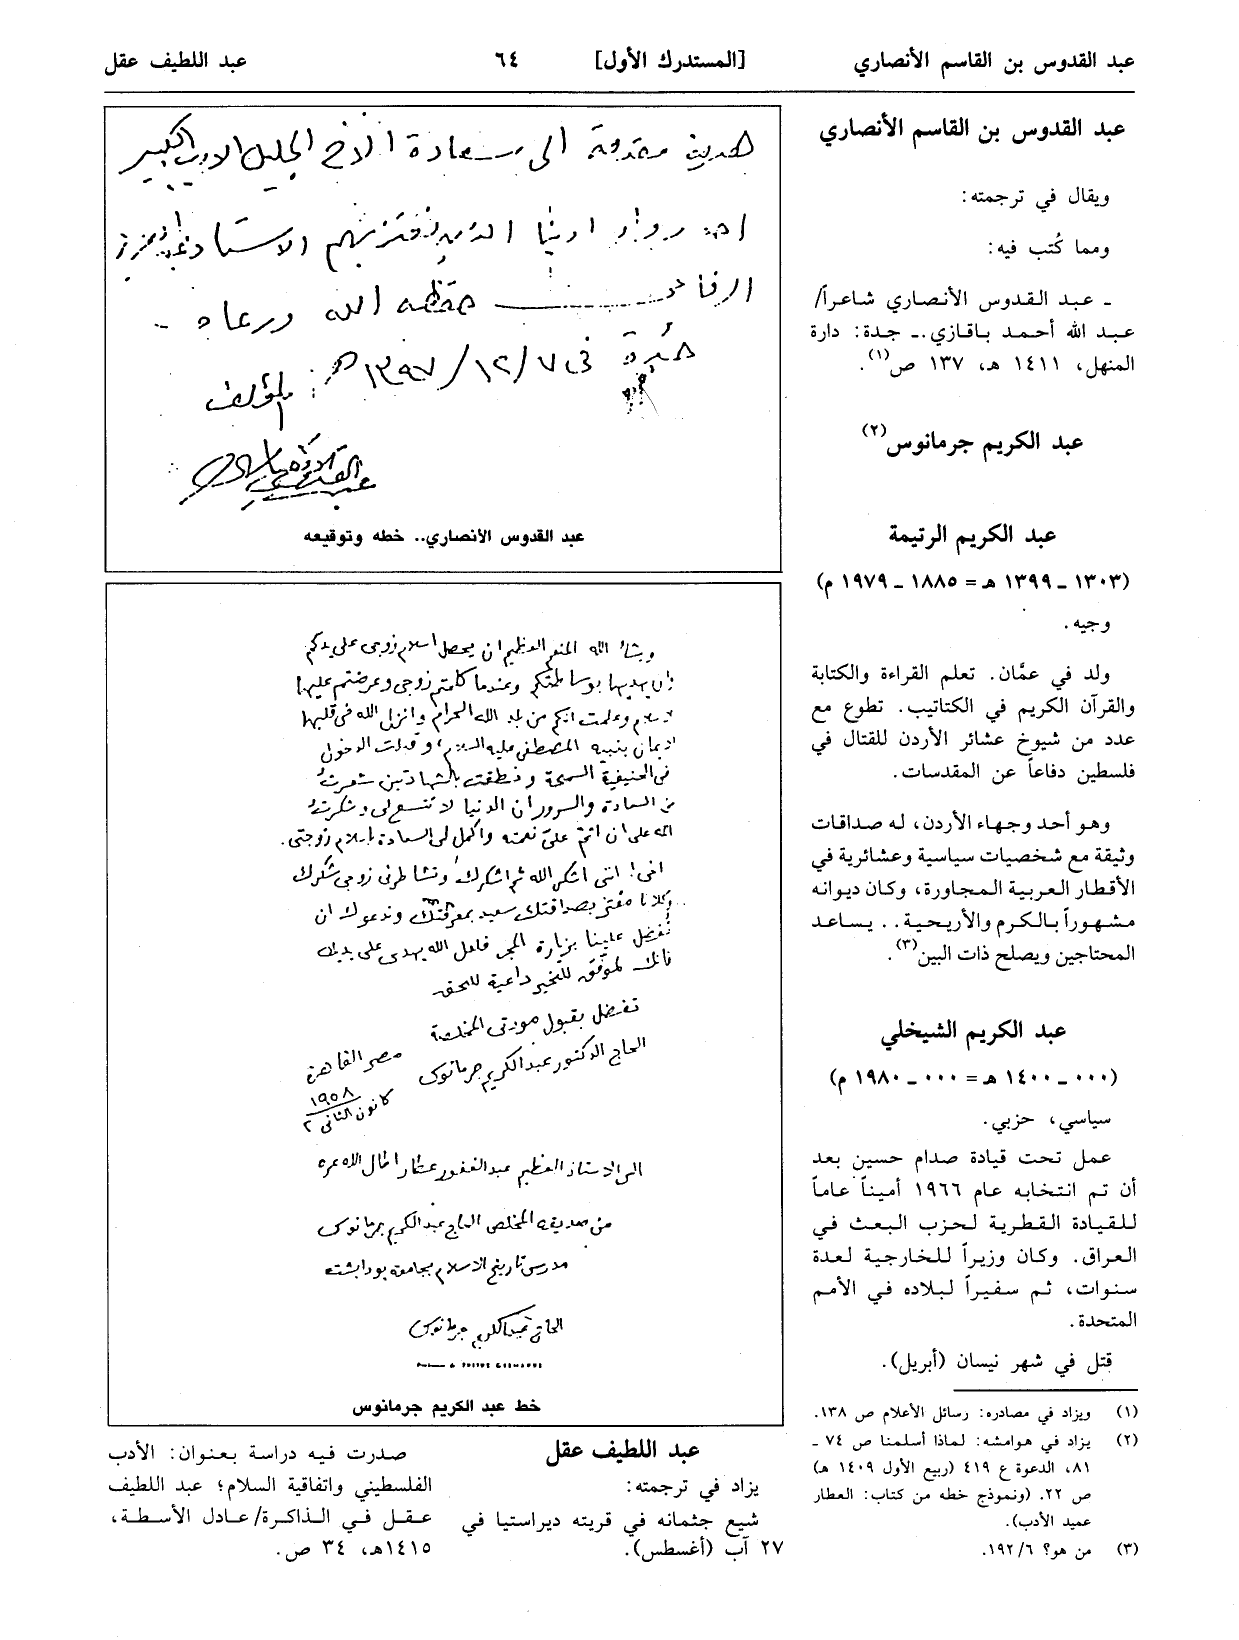 عبد القدوس بن القاسم الأنصاري
[المستدرك الأول]
٦٤
عبد اللطيف عقل
عبد القدوس بن القاسم الأنصاري
ويقال في ترجمته:
ومما كُتب فيه:
ـ عبد القدوس الأنصاري شاعراً/
عبد الله أحمد باقازي .ـ جدة: دارة
المنهل، ١٤١١ هـ، ١٣٧ ص(١).
عبد الكريم جرمانوس(٢)
عبد الكريم الرتيمة
(١٣٠٣ ـ ١٣٩٩ هـ = ١٨٨٥ ـ ١٩٧٩ م)
وجيه.
ولد في عمَّان. تعلم القراءة والكتابة
والقرآن الكريم في الكتاتيب. تطوع مع
عدد من شيوخ عشائر الأردن للقتال في
فلسطين دفاعاً عن المقدسات.
وهو أحد وجهاء الأردن، له صداقات
وثيقة مع شخصيات سياسية وعشائرية في
الأقطار العربية المجاورة، وكان ديوانه
مشهوراً بالكرم والأريحية.. يساعد
المحتاجين ويصلح ذات البين(٣).
عبد الكريم الشيخلي
(٠٠٠ ـ ١٤٠٠ هـ = ٠٠٠ ـ ١٩٨٠ م)
سياسي، حزبي.
عمل تحت قيادة صدام حسين بعد
أن تم انتخابه عام ١٩٦٦ أميناً عاماً
للقيادة القطرية لحزب البعث في
العراق. وكان وزيراً للخارجية لعدة
سنوات، ثم سفيراً لبلاده في الأمم
المتحدة.
قتل في شهر نيسان (أبريل).
(١) ويزاد في مصادره: رسائل الأعلام ص ١٣٨.
(٢) يزاد في هوامشه: لماذا أسلمنا ص ٧٤ ـ
٨١، الدعوة ع ٤١٩ (ربيع الأول ١٤٠٩ هـ)
ص ٢٢. (ونموذج خطه من كتاب: العطار
عميد الأدب).
(٣) من هو؟ ١٩٢/٦.
هدية مقدمة الى سعادة الأخ الجليل الاديب الكبير
احد رواد ادبنا الذين نفتز بهم الاستاذ عبد العزيز
الرفاعي حفظه الله ورعاه -
في ١٣٩٧/١٢/٧هـ: المؤلف
عبد القدوس الأنصاري
عبد القدوس الأنصاري.. خطه وتوقيعه
ويشاء الله المنعم العظيم ان يحصل اسلام زوجي على يدكم
وان يهديها بوساطتكم وعندما كلمتم زوجي وعرضتم عليها
الاسلام وعلمت انكم من بلد الله الحرام وانزل الله في قلبها
الايمان بنبيه المصطفى عليه السلام، وقبلت الدخول
في الحنيفية السمحة ونطقت بالشهادتين شعرت
من السعادة والسرور ان الدنيا لا تتسع لي وشكرت
الله على ان اتم علي نعمته واكمل لي السعادة باسلام زوجتي.
اخي! انني اشكر الله ثم اشكرك وتشاطرني زوجي شكرك
وكلانا مفتخر بصداقتك سعيد بمعرفتك وندعوك ان
تتفضل علينا بزيارة المجر فلعل الله يهدي على يديك
فانك لموفق للخير داعية للحق.
تفضل بقبول مودتي المخلصة
الحاج الدكتور عبد الكريم جرمانوس
مصر القاهرة
١٩٥٨
٢ كانون الثاني
الى الاستاذ العظيم عبد الغفور عطار اطال الله عمره
من صديقه المخلص الحاج عبد الكريم جرمانوس
مدرس تاريخ الاسلام بجامعة بودابشت
الحاج عبد الكريم جرمانوس
خط عبد الكريم جرمانوس
عبد اللطيف عقل
يزاد في ترجمته:
شيع جثمانه في قريته ديراستيا في
٢٧ آب (أغسطس).
صدرت فيه دراسة بعنوان: الأدب
الفلسطيني واتفاقية السلام؛ عبد اللطيف
عقل في الذاكرة/ عادل الأسطة،
١٤١٥هـ، ٣٤ ص.